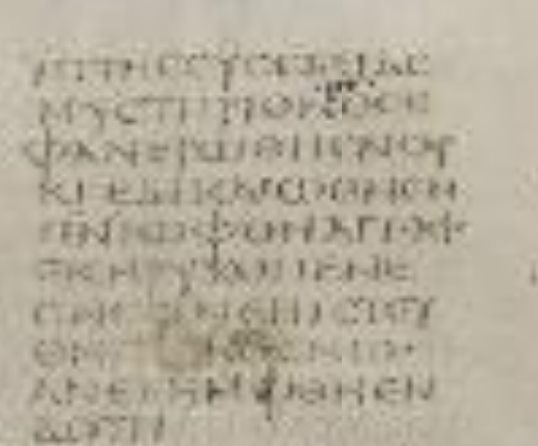 ΤΗϹΕΥϹΕΒΕΙΑϹ
ΜΥϹΤΗΡΙΟΝΟϹΕ
ΦΑΝΕΡΩΘΗΕΝϹΑΡ
ΚΙΕΔΙΚΑΙΩΘΗΕΝ
ΠΝΙΩΦΘΗΑΓΓΕΛ
ΕΚΗΡΥΧΘΗΕΝΕ
ΘΝΕϹΙΝΕΠΙϹΤΕΥ
ΘΗΕΝΚΟϹΜΩ
ΑΝΕΛΗΜΦΘΗΕΝ
ΔΟΞΗ